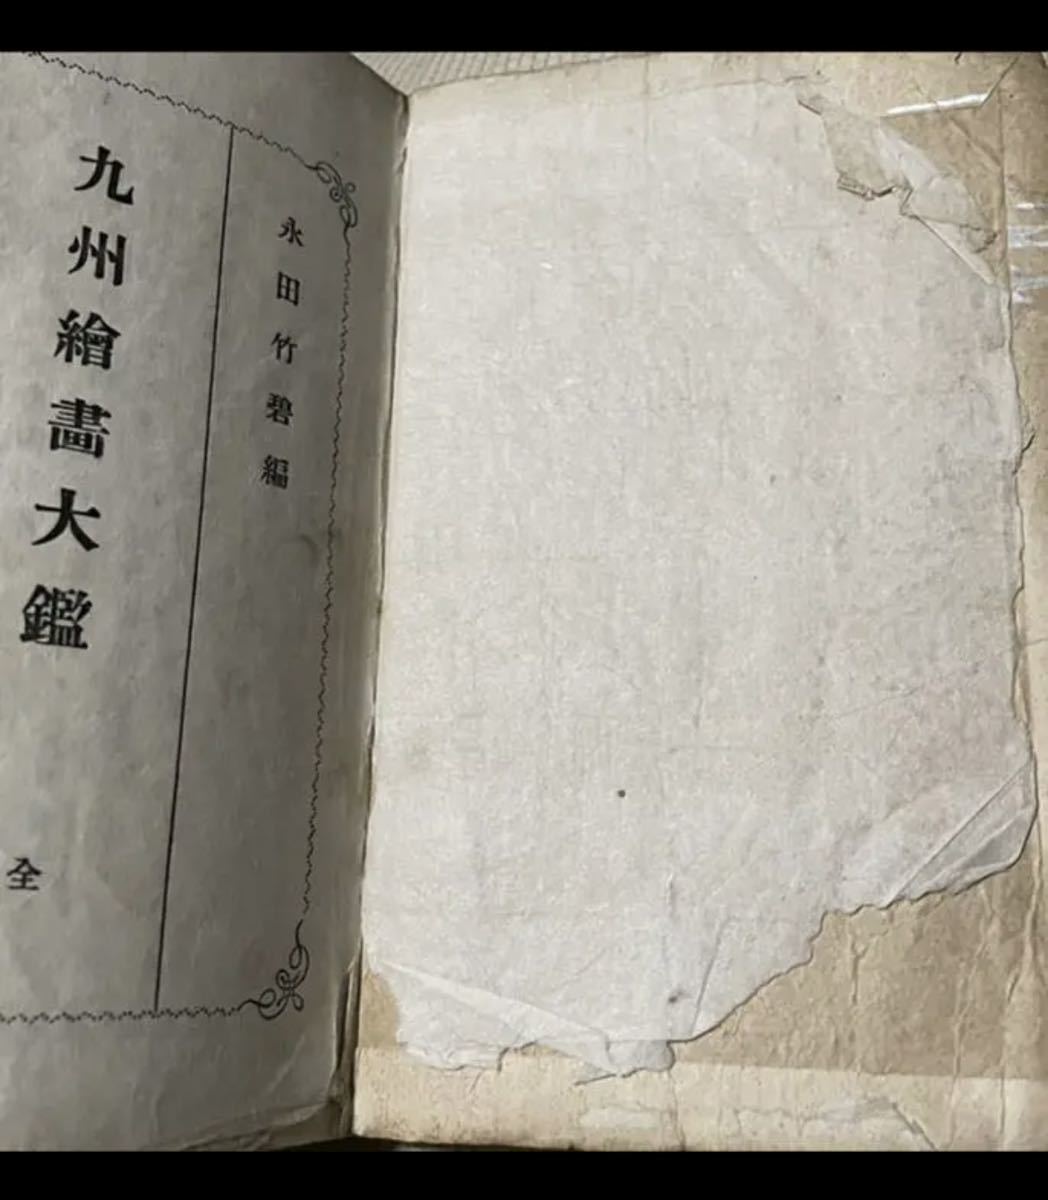 永田竹碧編
九州繪畫大鑑
全